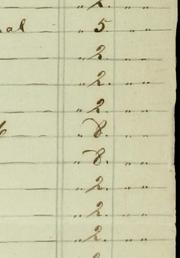 „ 2. „ „
nal „ 5 „ „
„ 2 „ „
„ 2. „ „
„ 2 „ „
„ 8. „ „
„ 8. „ „
„ 2. „ „
„ 2. „ „
„ 2. „ „